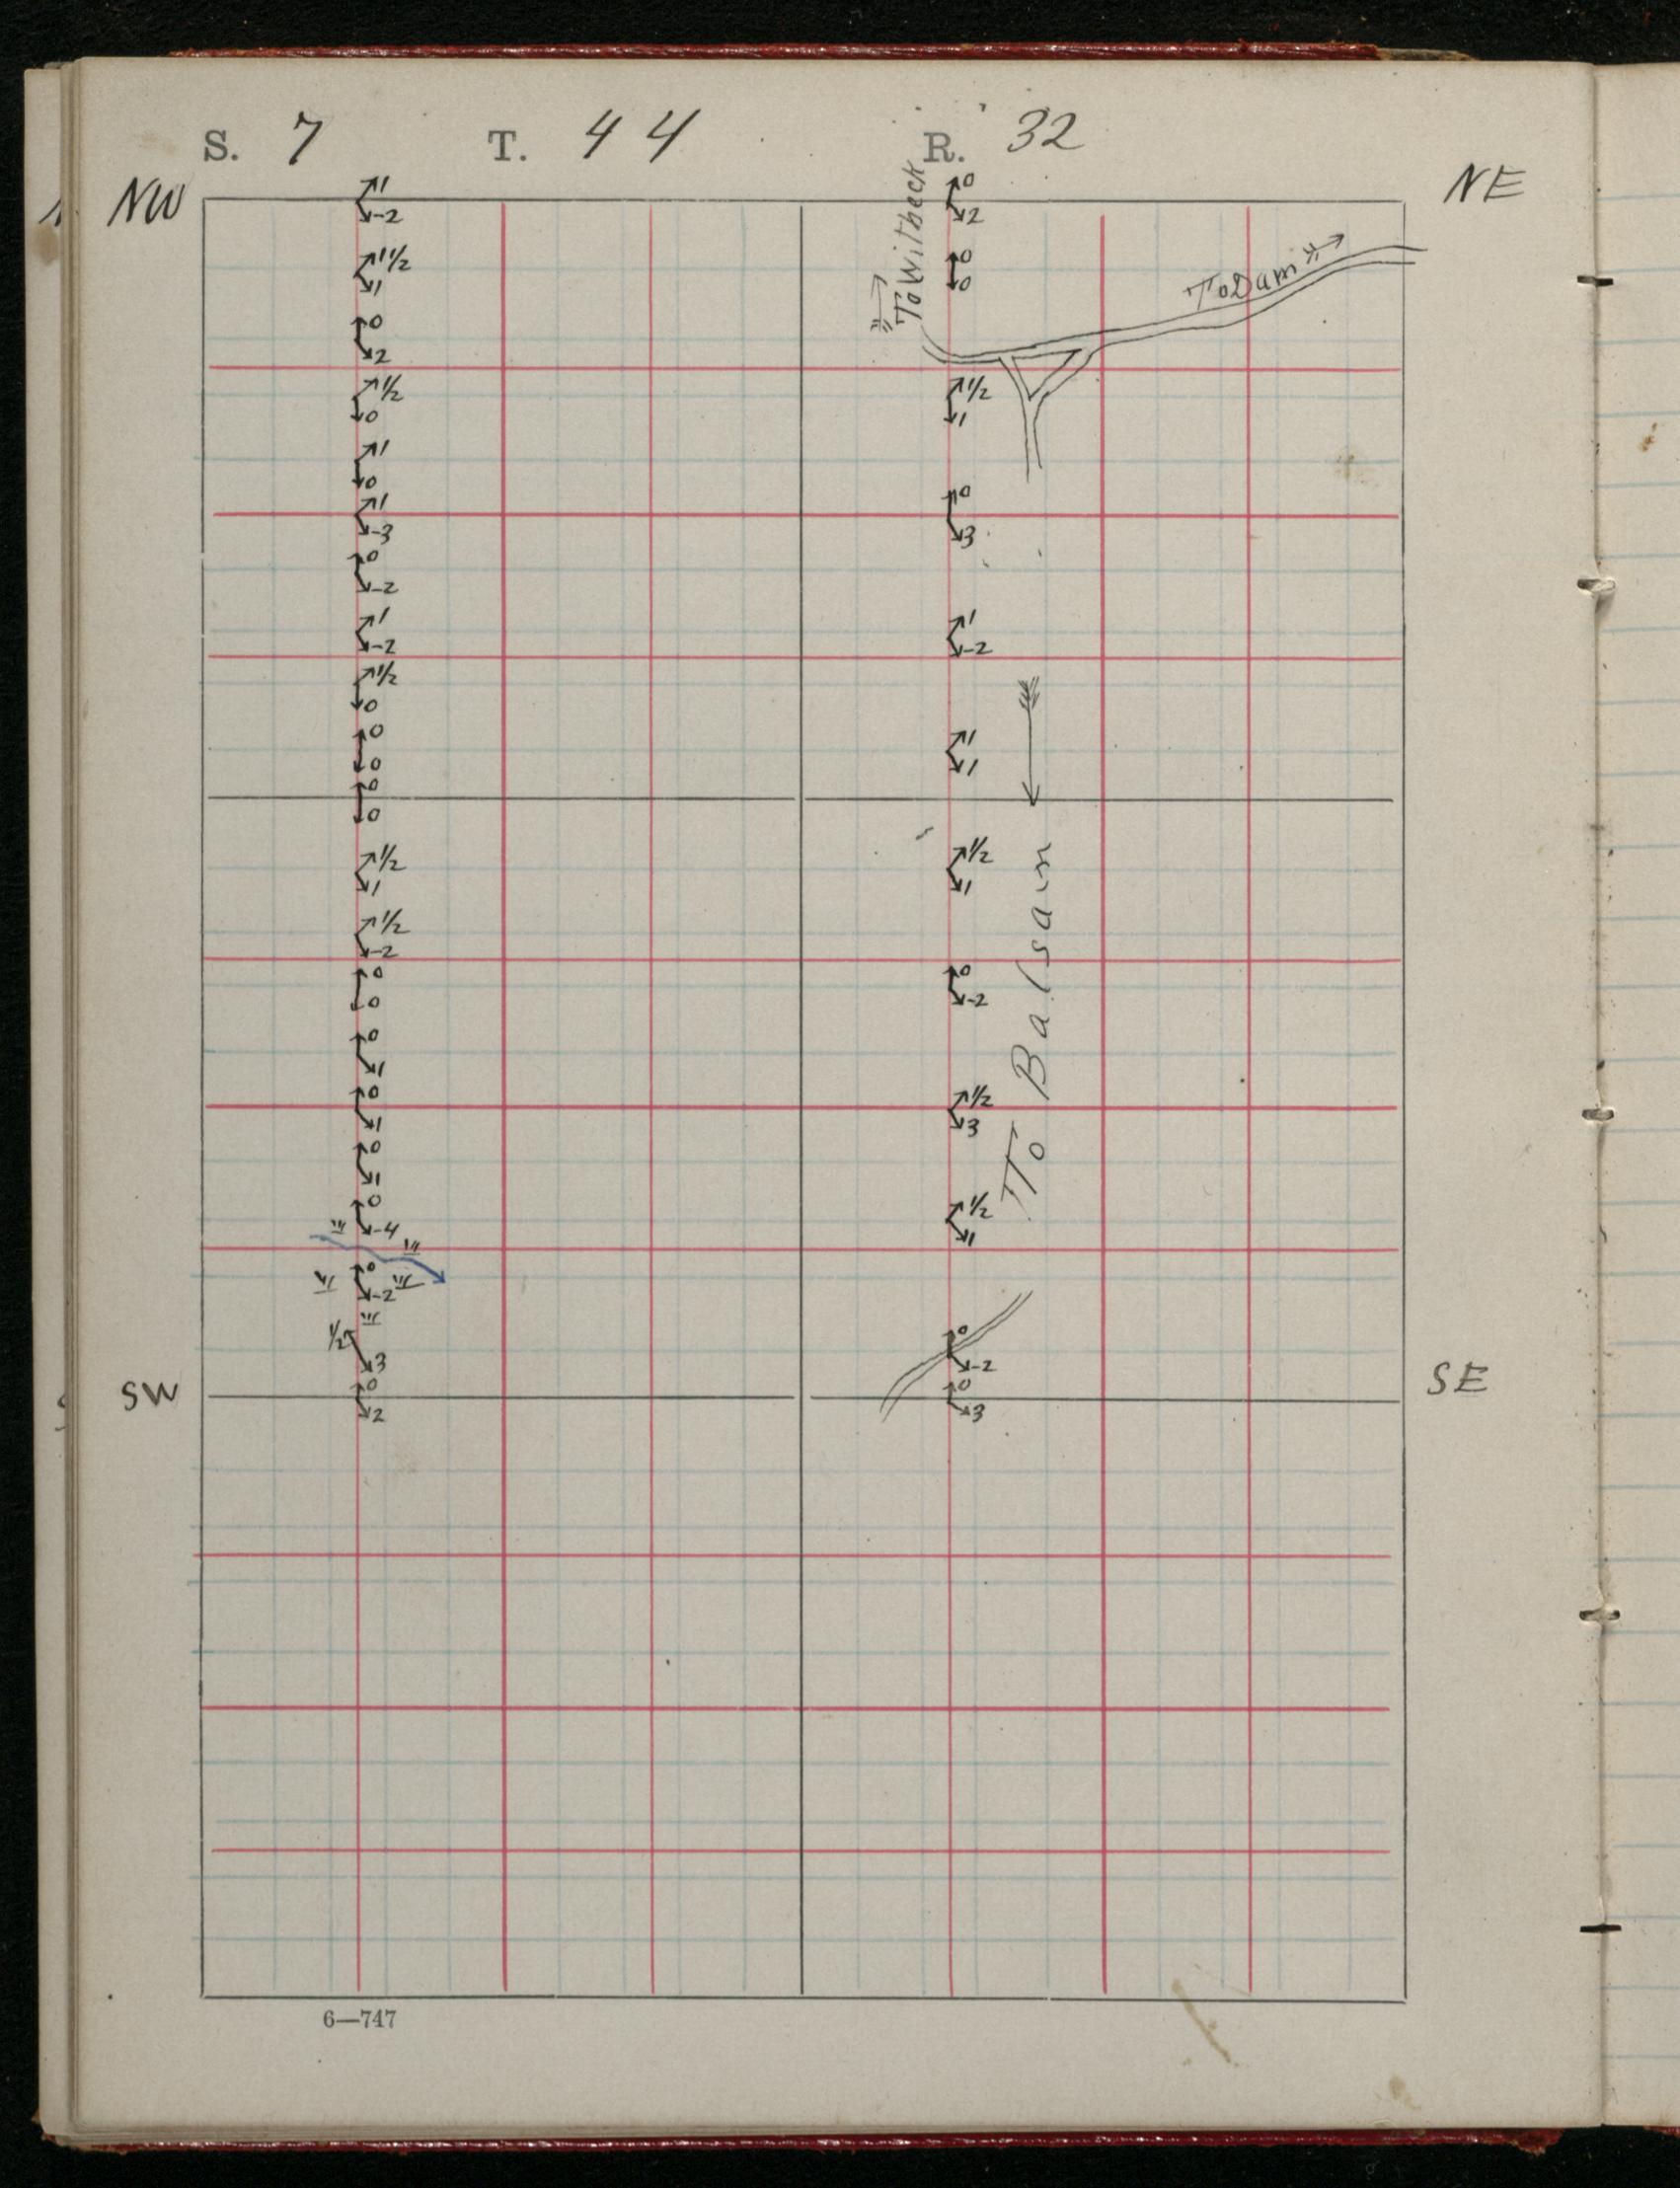 S. 7 T. 44 R. 32
NW NE
To Witbeck
To Dam
1
-2
1 1/2
1
0
2
1/2
0
1
0
1
-3
0
-2
1
-2
1/2
0
0
0
0
0
1/2
1
1/2
-2
0
0
0
1
0
1
0
1
0
-4
0
-2
1/2
3
0
2
0
2
0
0
1/2
1
0
3
1
-2
1
1
1/2
1
0
-2
1/2
3
1/2
1
0
-2
0
3
To Balsam
SW SE
6—747